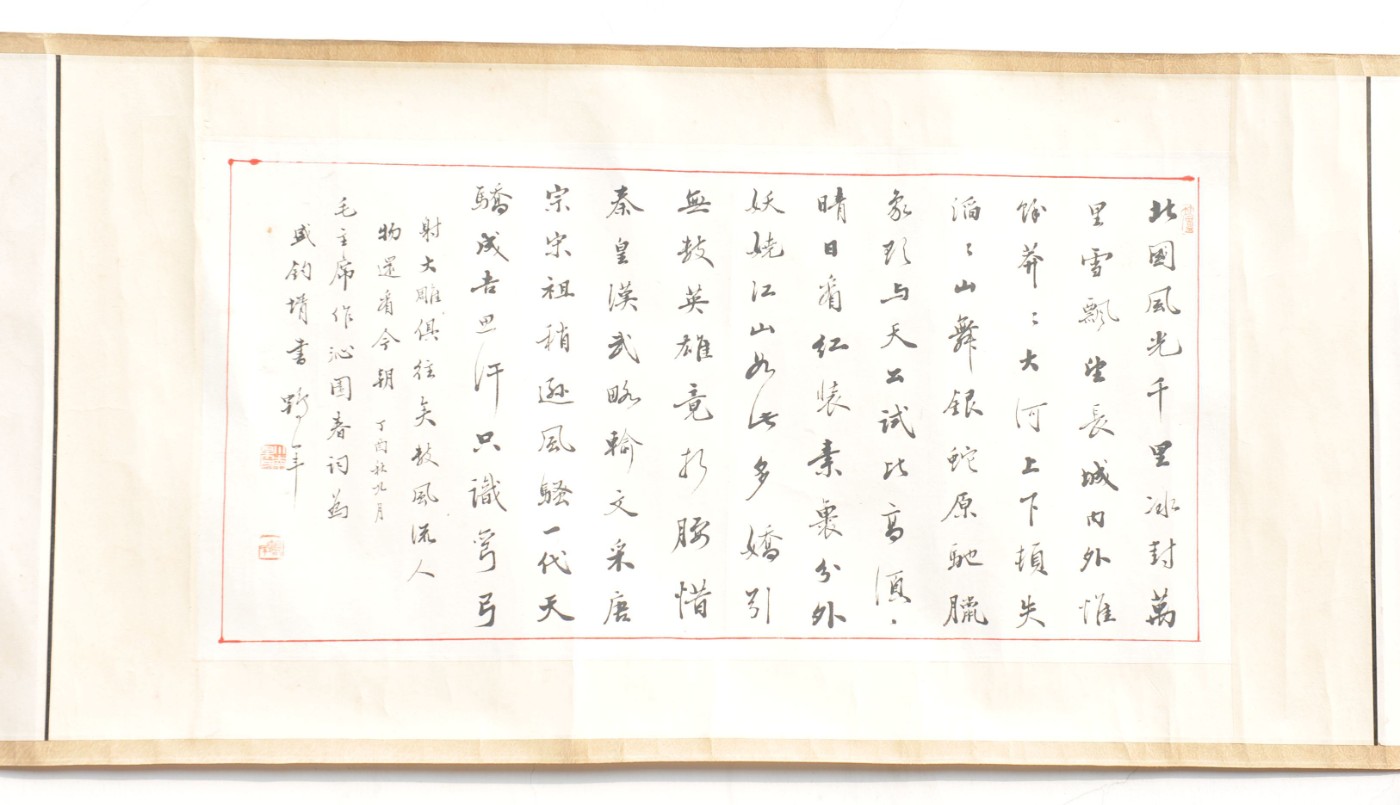 北國風光千里冰封萬
里雪飄望長城内外惟
餘莽〻大河上下頓失
滔〻山舞銀蛇原馳臘
象欲与天公試比高須、
晴日看红裝素裹分外
妖嬈江山如此多嬌引
無數英雄竟折腰惜
秦皇漢武略輸文采唐
宗宋祖稍遜風騷一代天
驕成吉思汗只識彎弓
射大雕俱往矣數風流人
物還看今朝 丁酉秋九月
毛主席作沁園春詞為
盛鈞壻書